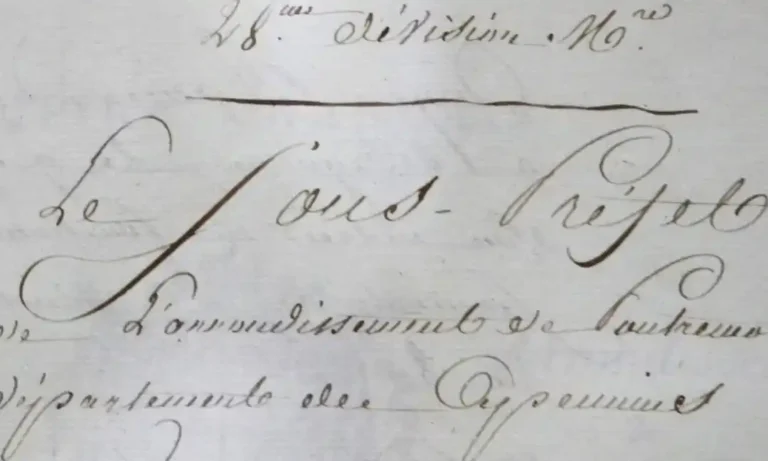 28.me division M.re
Le Sous-Préfet
de L'arrondissement de Pontremo
département des Appennines